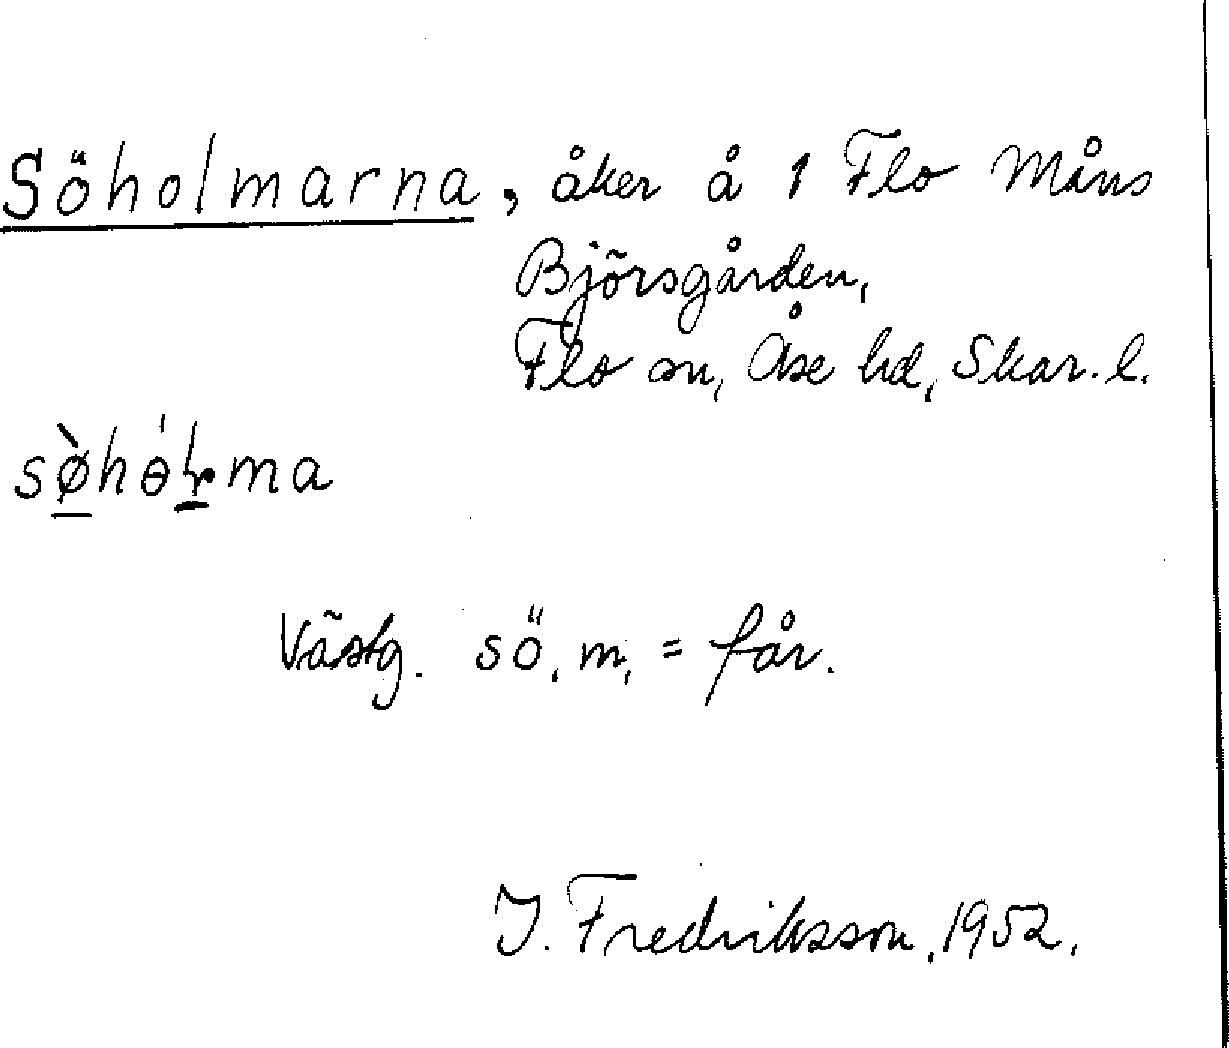 Söholmarna, åker å 1 Flo Måns
Björsgården,
Flo sn, Åse hd, Skar. l.
sø̀hɵ́ɫma
Västg. sö, m, = får.
J. Fredriksson, 1952.